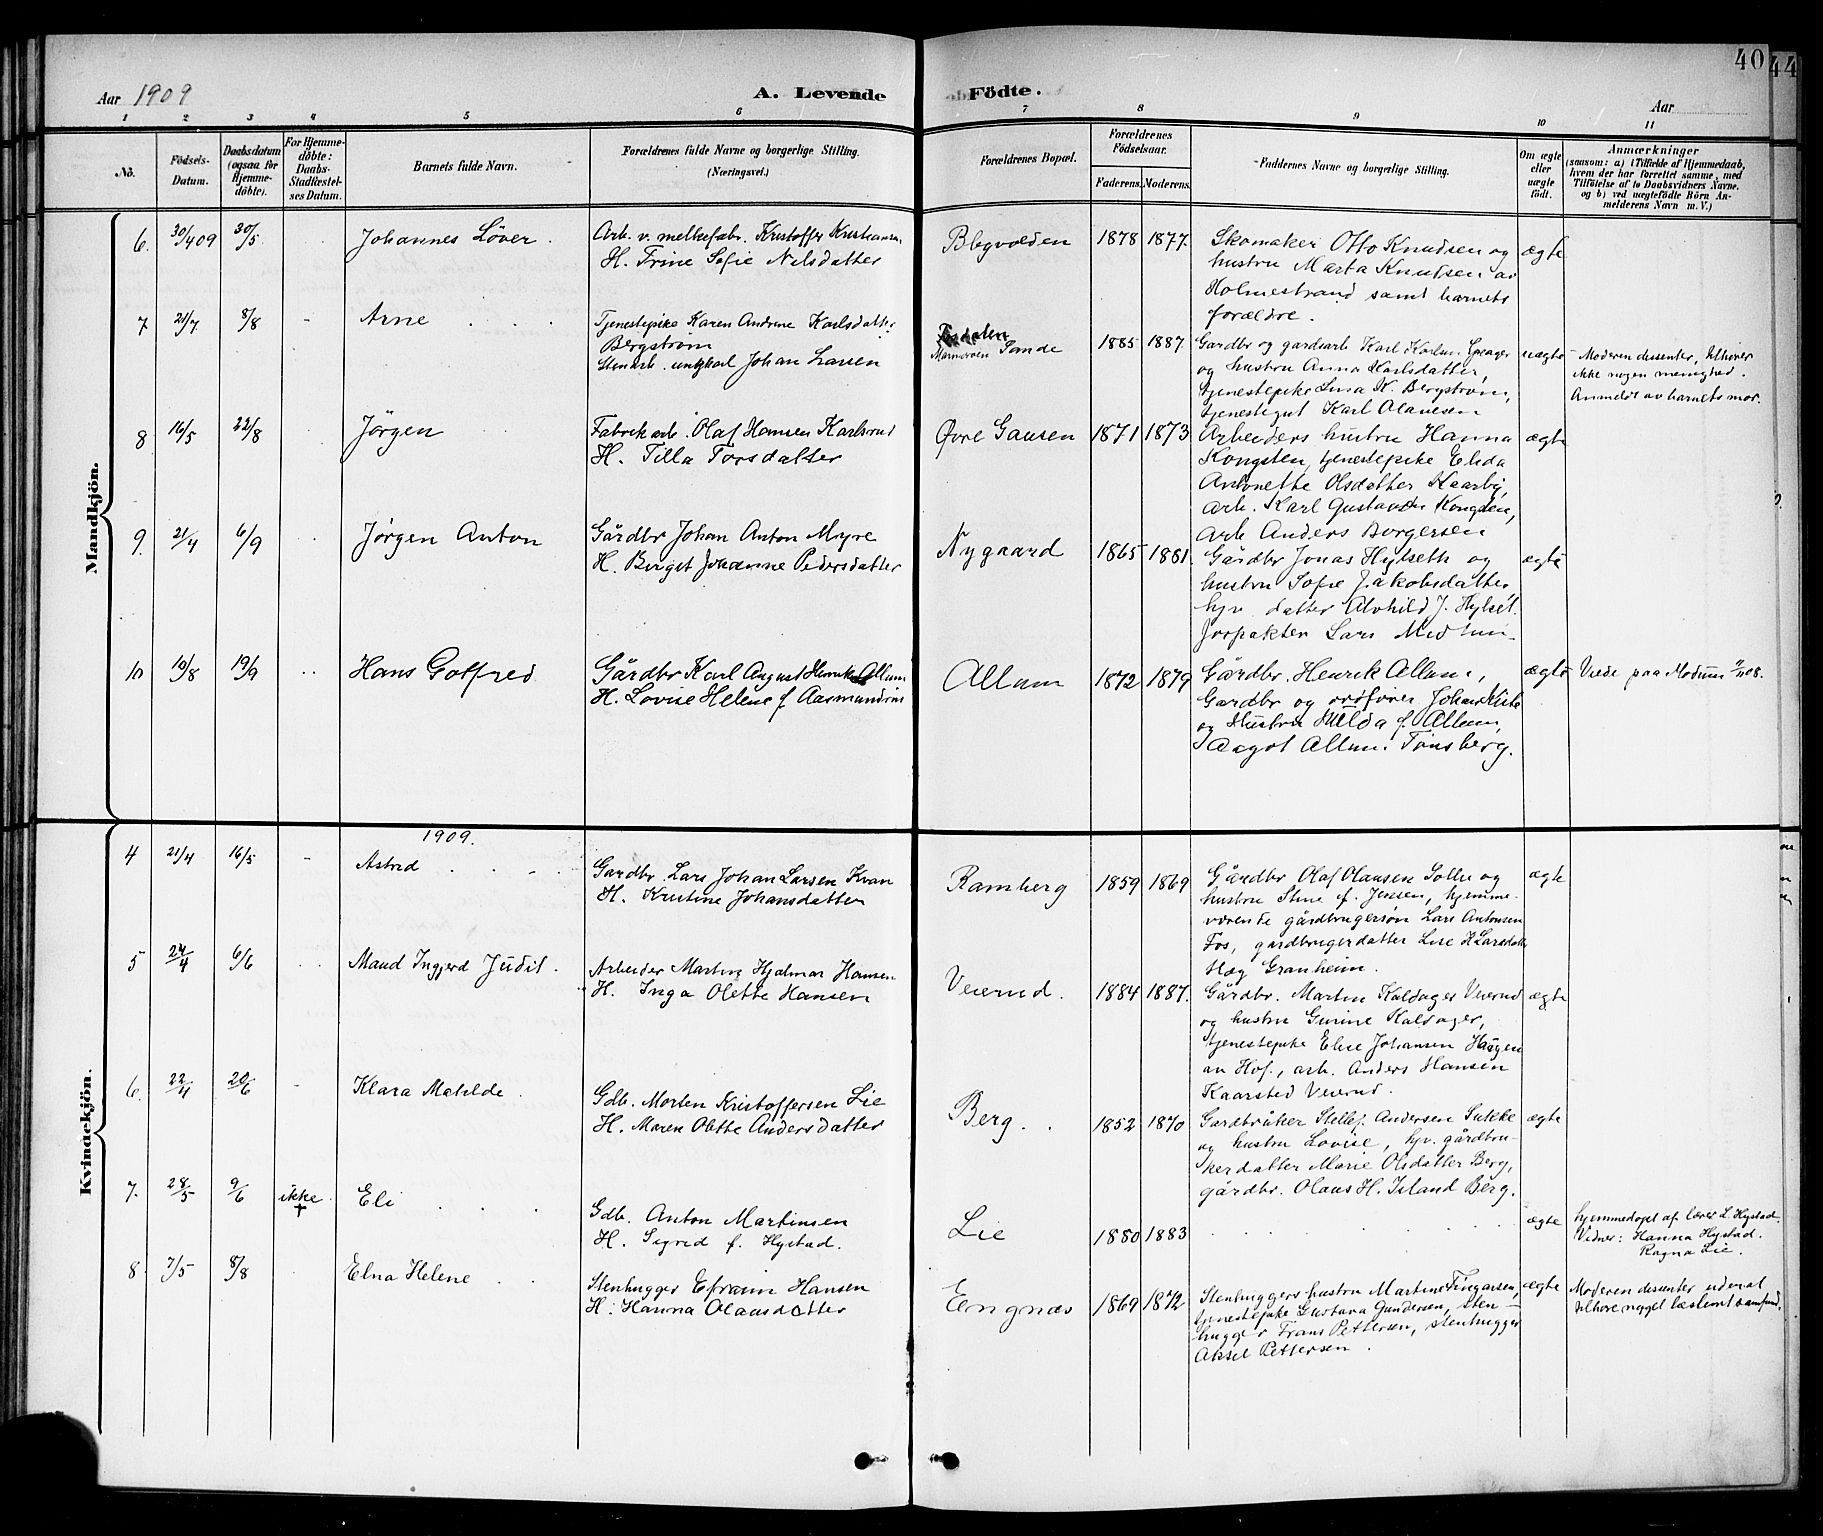 40
44
Aar 1909
A. Levende Födte.
Aar
1 2 3 4 5 6 7 8 9 10 11
No.
Födsels-
Datum.
Daabsdatum
(ogsaa for
Hjemme-
döbte).
For Hjemme-
döbte:
Daabs-
Stadfæstel-
ses Datum.
Barnets fulde Navn.
Forældrenes fulde Navne og borgerlige Stilling.
(Næringsvei.)
Forældrenes Bopæl.
Forældrenes
Födselsaar.
Faderens. Moderens.
Faddernes Navne og borgerlige Stilling.
Om ægte
eller
uægte
födt.
Anmærkninger
(saasom: a) i Tilfælde af Hjemmedaab,
hvem der har forrettet samme, med
Tilföielse af to Daabsvidners Navne,
og b) ved uægtefödte Börn An-
melderens Navn m. V.)
Mandkjön.
6. 30/4 09 30/5 Johannes Löver.
Arb. v. melkefabr. Kristoffer Kristiansen
H. Trine Sofie Nilsdatter
1878 1877.
Skomaker Otto Knudsen og
hustru Marta Knudsen av
Holmestrand samt barnets
forældre.
ægte
7. 21/7 8/8 - Arne
Tjenestepike Karen Andrine Karlsdatter
Bergström
Stenarb. ungkarl Johan Larsen
Sande
1885 1887.
Gardbr og gardarb Karl Karlsen
og hustru Anna Karlsdatter,
tjenestepike Lina K. Bergström,
tjenestegut Karl Olavesen
uægte
Moderen dissenter, tilhører
ikke nogen menighed.
Anmeldt av barnets mor.
8 16/5 22/8 Jörgen
Fabrikarb. Olaf Hansen Karlsrud
H. Tilla Torsdatter
Øvre Gausen
1871 1873
Arbeiders hustru Hanna
Kongsten, tjenestepike Elida
Antonette Olsdatter Kaarby,
Arb. Karl Gustavsen Kongsten,
Arb Anders Borgersen
ægte
9. 21/4 6/9 Jørgen Anton
Gårdbr Johan Anton Myre
H. Birgit Johanne Pedersdatter
Nygaard
1865 1881.
Gårdbr Jonas Hylseth og
hustru Sofie Jakobsdatter
hjv. datter Alvhild J. Hylset.
Jorpakter Lars
ægte
10 19/8 19/9 Hans Gotfred
Gårdbr Karl August Henrik Allum
H. Lovise Helene f. Aasmundrud
Allum
1872 1879
Gårdbr. Henrik Allum,
Gardbr og Johan Kiste
og Hustru Hilda f. Allum,
Aagot Allum. Tönsberg.
ægte
Viede paa Modum
Kvindekjön.
1909.
4 21/4 16/5 - Astrid
Gardbr. Lars Johan Larsen Kvan
H. Kristine Johansdatter
Ramberg
1859 1869
Gårdbr Olaf Olausen Solli og
hustru Stine f. Jensen, hjemme-
værende gårdbrugersøn Lars Antonsen
Fos, gårdbrugerdatter Lise H Larsdatter
Høg Granheim.
ægte
5 24/4 6/6 Maud Ingjerd Judit.
Arbeider Martin Hjalmar Hansen
H. Inga Olette Hansen
Veierud.
1884 1887.
Gårdbr. Martin Kaldager Veierud
og hustru Gurine Kaldager,
tjenestepike Elise Johansen Haugen
av Hof, arb. Anders Hansen
Kaarsted Veierud.
ægte
6. 22/4 20/6 - Klara Matilde
Gdb. Morten Kristoffersen Lie
H. Maren Olette Andersdatter
Berg.
1852 1870
Gardbruker Andersen Sukke
og hustru Lovise, hjv. gårdbru-
kerdatter Marie Olsdatter Berg,
gårdbr. Olaus H. Island Berg.
ægte
7. 28/5 9/6 ikke † Eli
Gdb. Anton Martinsen
H. Sigrid f. Hystad.
Lie
1880 1883
ægte
hjemmedøpt af lærer L. Hystad.
Vidner: Hanna Hystad.
Ragna Lie.
8. 7/5 8/8 Elna Helene
Stenhugger Efraim Hansen
H. Hanna Olausdatter
Engnæs
1869 1872
Stenhuggers hustru Martine Tingarsen,
tjenestepike Gustava Gundersen, sten-
hugger Frans Pettersen, stenhugger
Aksel Pettersen.
ægte
Moderen dissenter uden at
tilhøre noget bestemt samfund.